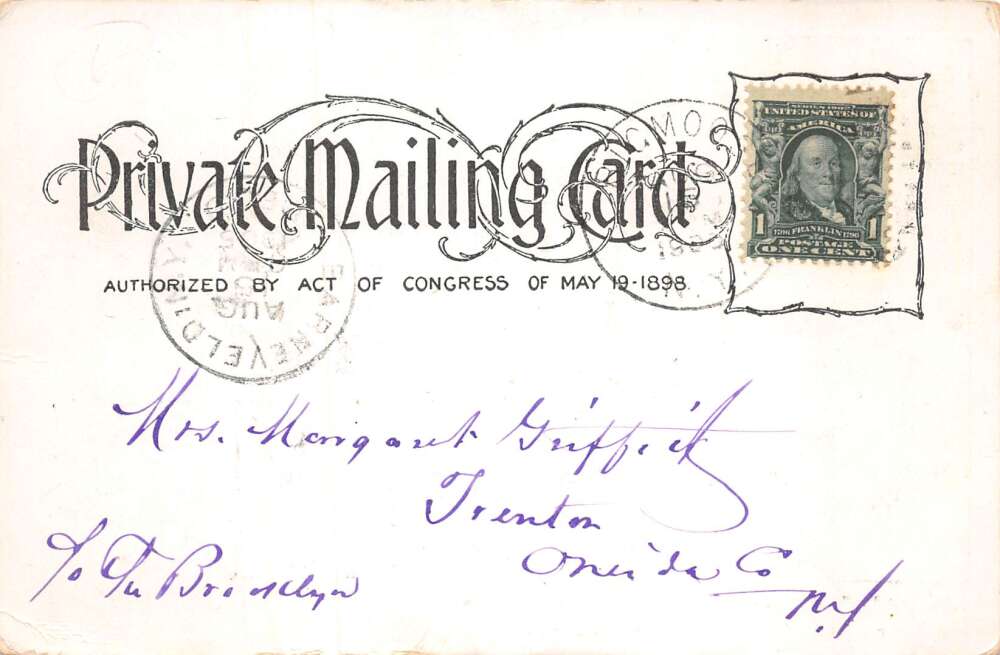 Private Mailing Card
AUTHORIZED BY ACT OF CONGRESS OF MAY 19-1898.
SERIES 1902
UNITED STATES OF
AMERICA
1 FRANKLIN 1
POSTAGE
ONE CENT
BARNEVELD
AUG
Mrs. Margaret Griffith
Trenton
Oneida Co
N.Y
Brooklyn